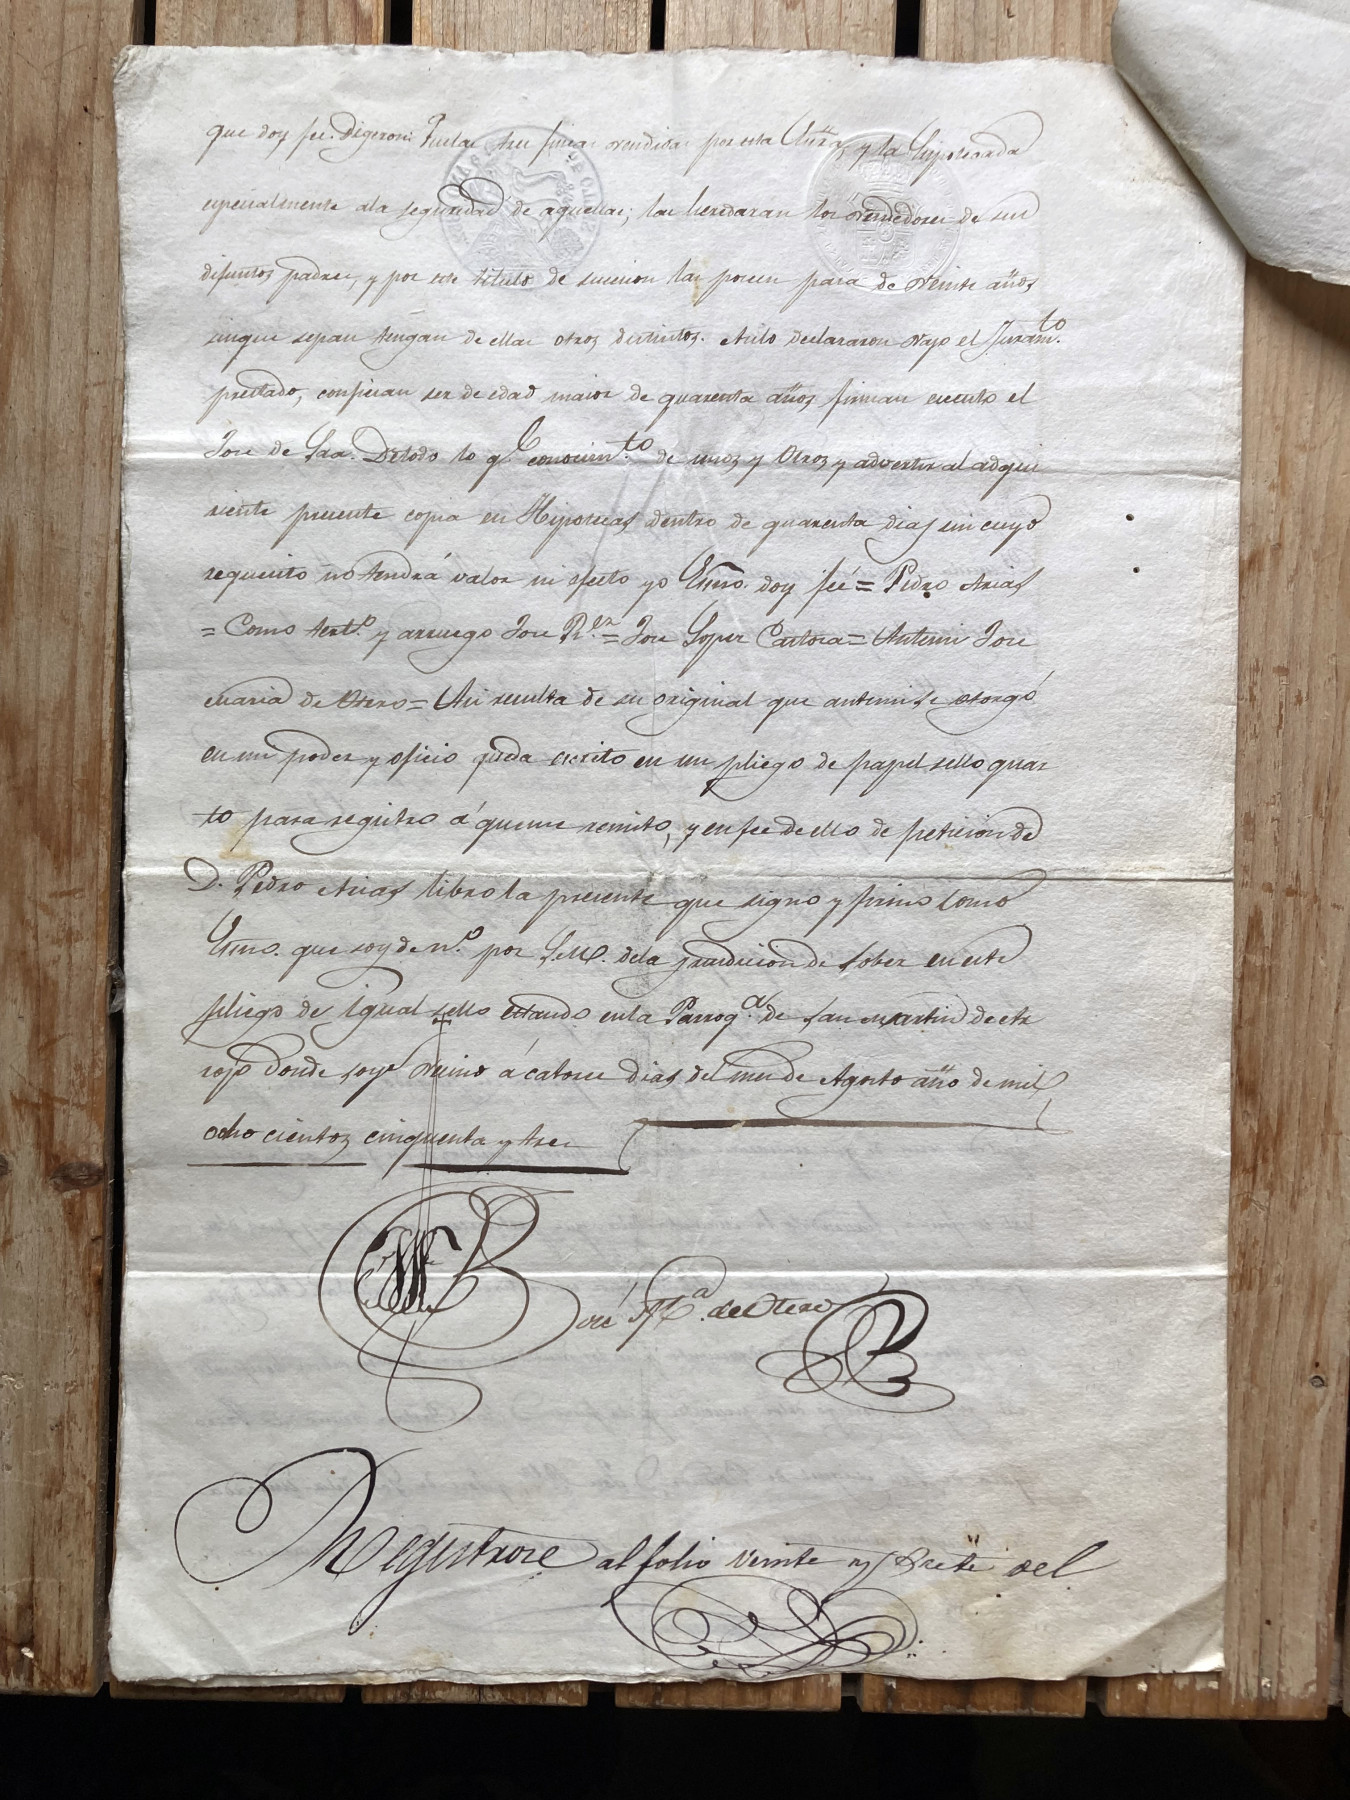 que doy fee. Digeron: Que las tres fincas vendidas por esta Esra, y la hipotecada
especialmente ala seguridad de aquellas; las heredaran los vendedores de sus
difuntos padres, y por este titulo de sucesion las poseen pasa de veinte años
sinque sepan tengan de ellas otros distintos. Asilo declararon vajo el Juramto.
prestado, confiesan ser de edad maior de quarenta años firman esceuto el
Jose de Saa. Detodo lo q.e conocim.to de unos y otros y advertir al adqui
riente presente copia en Hipotecas dentro de quarenta dias sin cuyo
requisito no tendrá valor ni efecto yo Essno. doy feé = Pedro Arias
= Como test.o y arruego Jose R.ez = Jose Lopez Cartora = Antemi Jose
Maria de Otero = Asi resulta de su original que antemi se otorgó
en mi poder y oficio queda escrito en un pliego de papel sello quar
to para registro á queme remito, y en fee de ello de peticion de
D. Pedro Arias libro la presente que signo y firmo como
Essno. que soy de n.o por S.M. dela jurisdicion de Sober en este
pliego de igual sello estando enla Parroq.a de San Martin de
donde soy vecino á catorce dias del mes de Agosto año de mil
ocho cientos cinquenta y tres
José M.a de Otero
Registrose al folio veinte y siete del